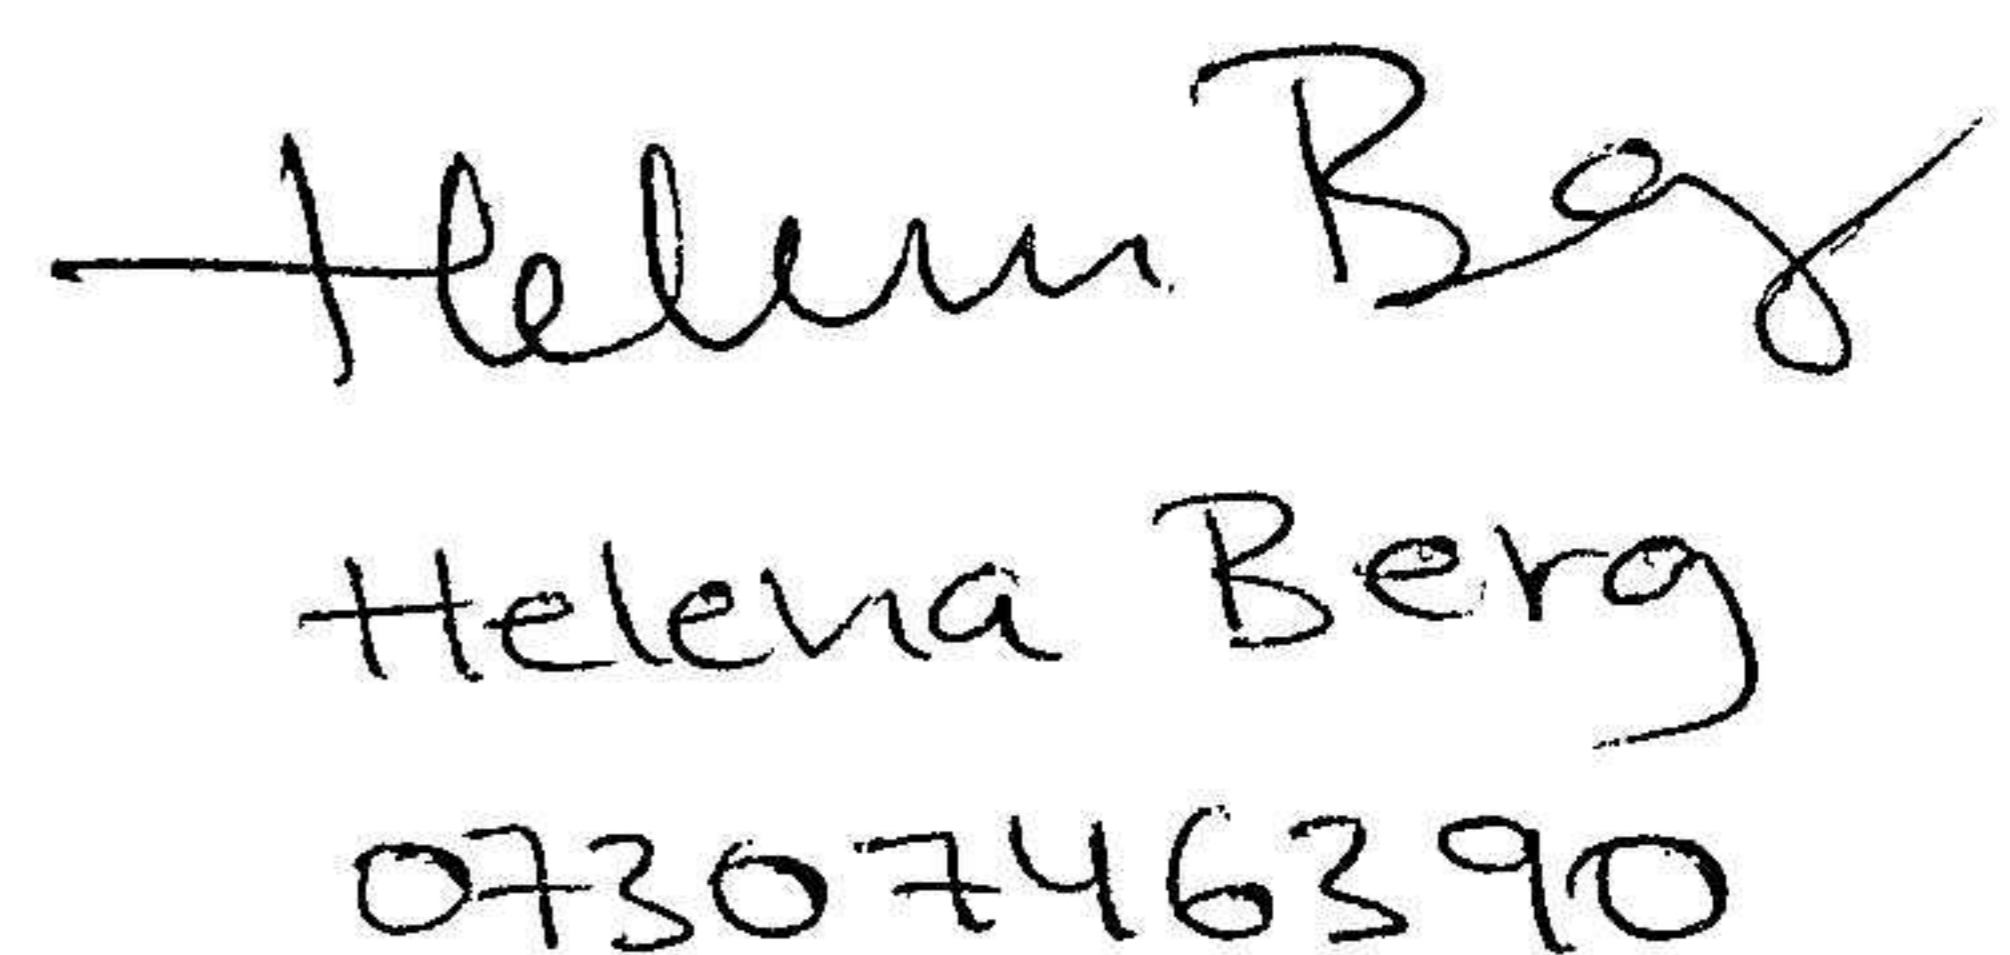 Helena Berg
Helena Berg
0730746390